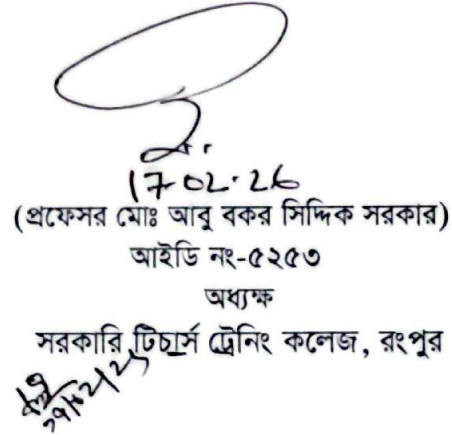 17-02-26
(প্রফেসর মোঃ আবু বকর সিদ্দিক সরকার)
আইডি নং-৫২৫৩
অধ্যক্ষ
সরকারি টিচার্স ট্রেনিং কলেজ, রংপুর